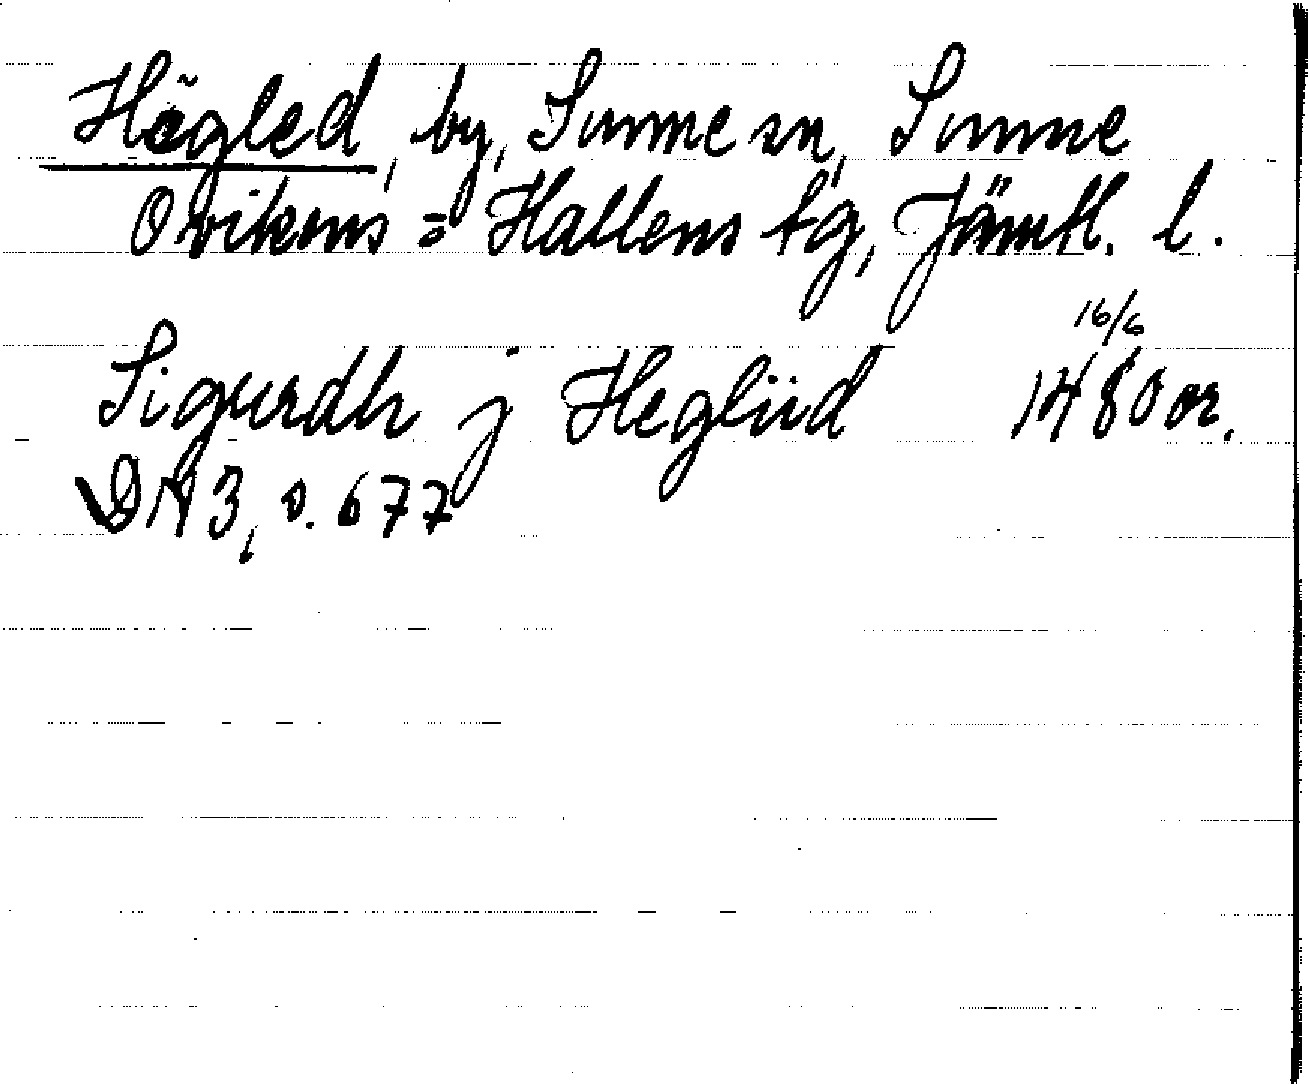 Högled, by, Sunne sn, Sunne
Ovikens = Hallens tg, Jämtl. l.
16/6
Sigurdh j Heglüd 1480 or.
DN 3, s. 677